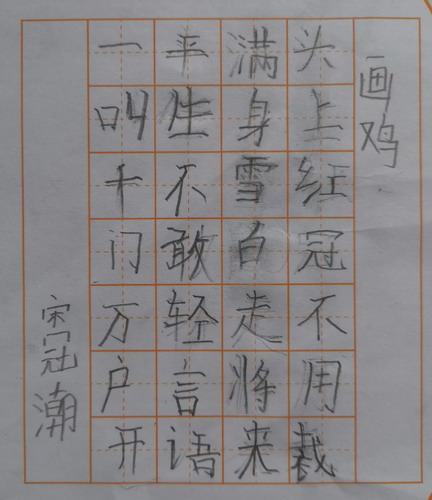 画鸡
头上红冠不用裁
满身雪白走将来
平生不敢轻言语
一叫十门万户开
宋冠潮